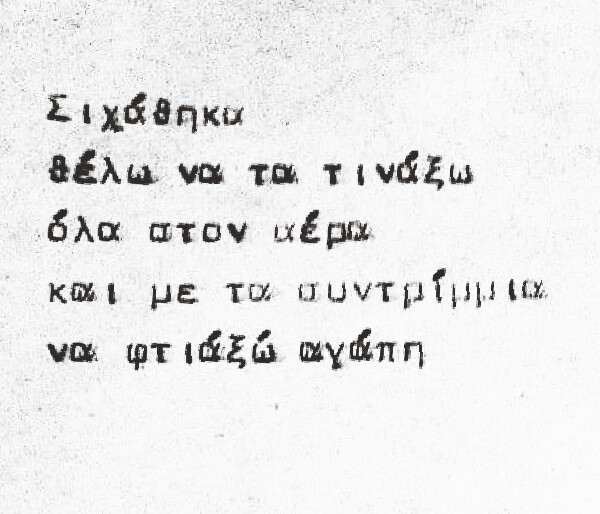 Σιχάθηκα
θέλω να τα τινάξω
όλα στον αέρα
και με τα συντρίμμια
να φτιάξώ αγάπη